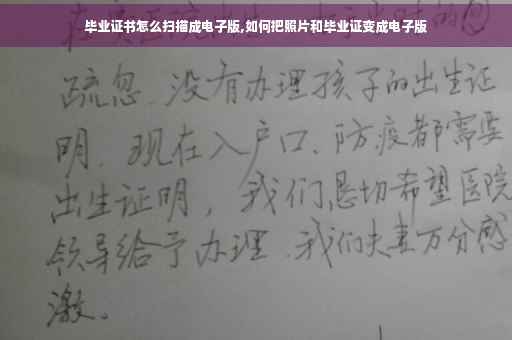 毕业证书怎么扫描成电子版,如何把照片和毕业证变成电子版
疏忽、没有办理孩子的出生证
明、现在入户口、防疫都需要
出生证明，我们恳切希望医院
领导给予办理、我们夫妻万分感
激。